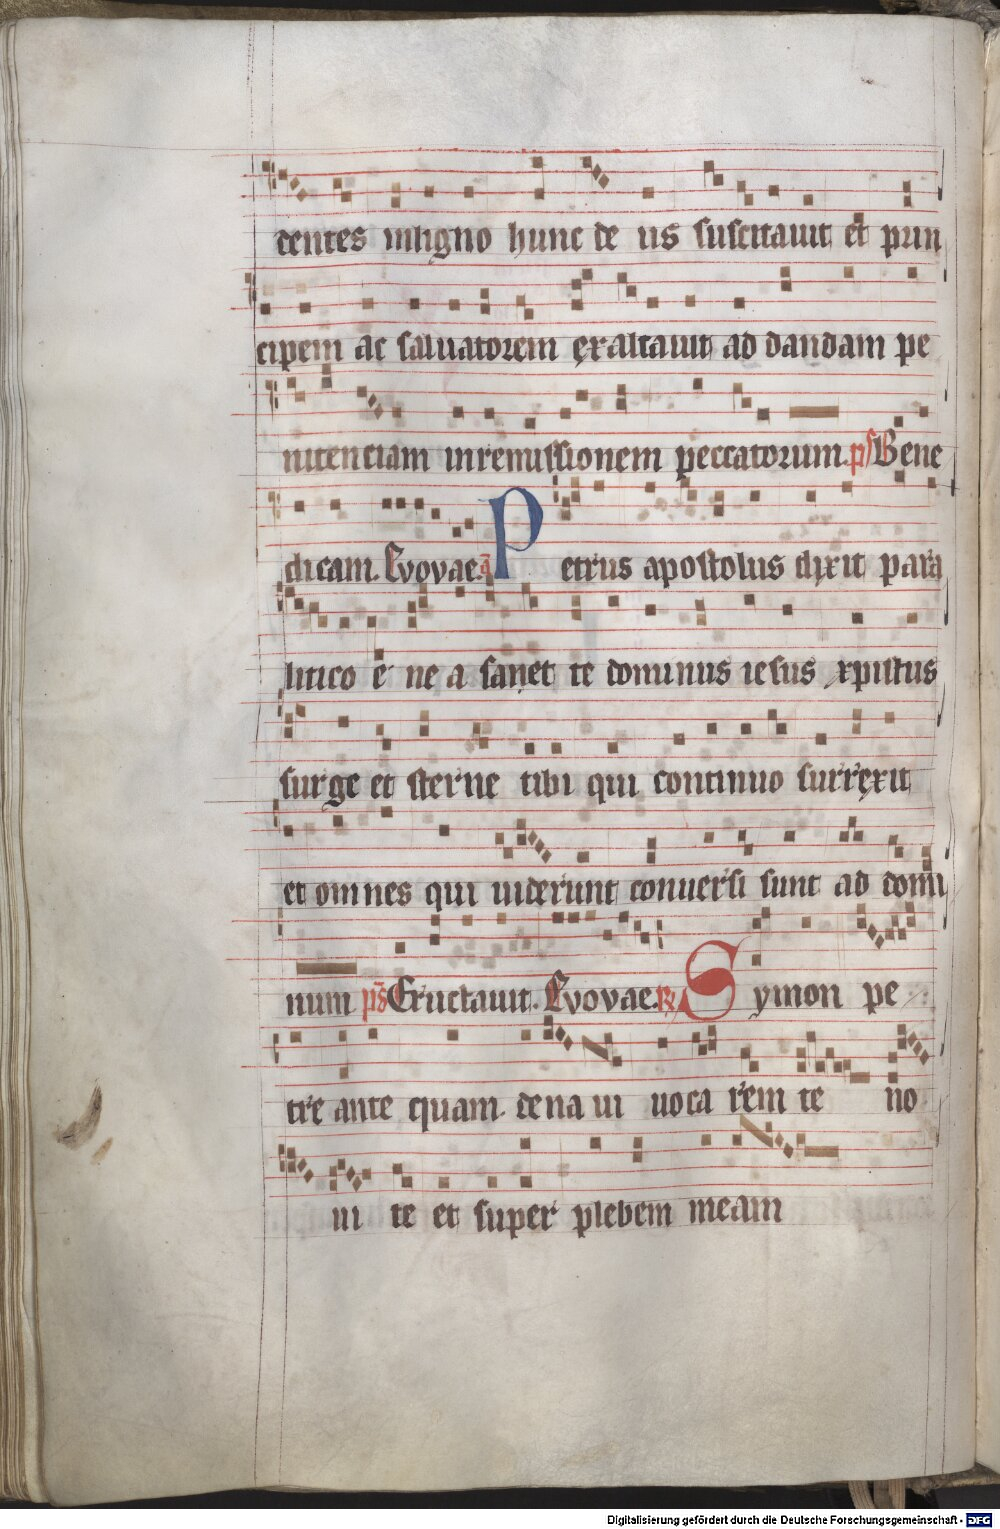 dentes inligno hunc de us suscitauit et prin
cipem ac saluatorem exaltauit ad dandam pe
nitenciam inremissionem peccatorum. ps Bene
dicam. Evovae. a Petrus apostolus dixit para
litico e ne a sanet te dominus iesus xpistus
surge et sterne tibi qui continuo surrexit
et omnes qui uiderunt conuersi sunt ad domi
num ps Eructauit. Evovae. R Symon pe
tre ante quam. de na ui uoca rem te no
ui te et super plebem meam
Digitalisierung gefördert durch die Deutsche Forschungsgemeinschaft - DFG